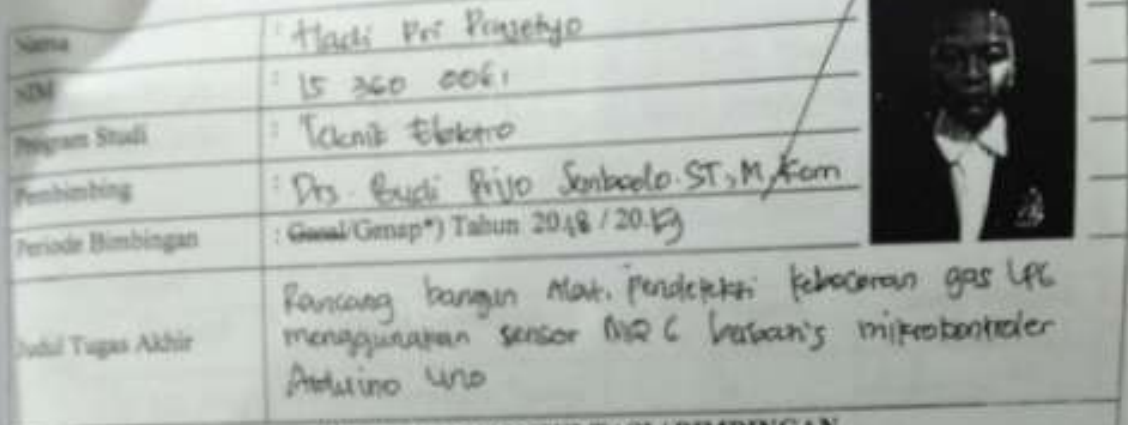 Nama : Hadi Pri Prasetyo
NIM : 15 360 0061
Program Studi : Teknik Elektro
Pembimbing : Drs. Budi Priyo Sembodo. ST, M, Kom
Periode Bimbingan : Gasal/Genap*) Tahun 2018 / 2019
Rancang bangun Alat. Pendeteksi kebocoran gas LPG
Judul Tugas Akhir menggunakan sensor MQ 6 berbasis mikrokontroler
Arduino Uno
BIMBINGAN